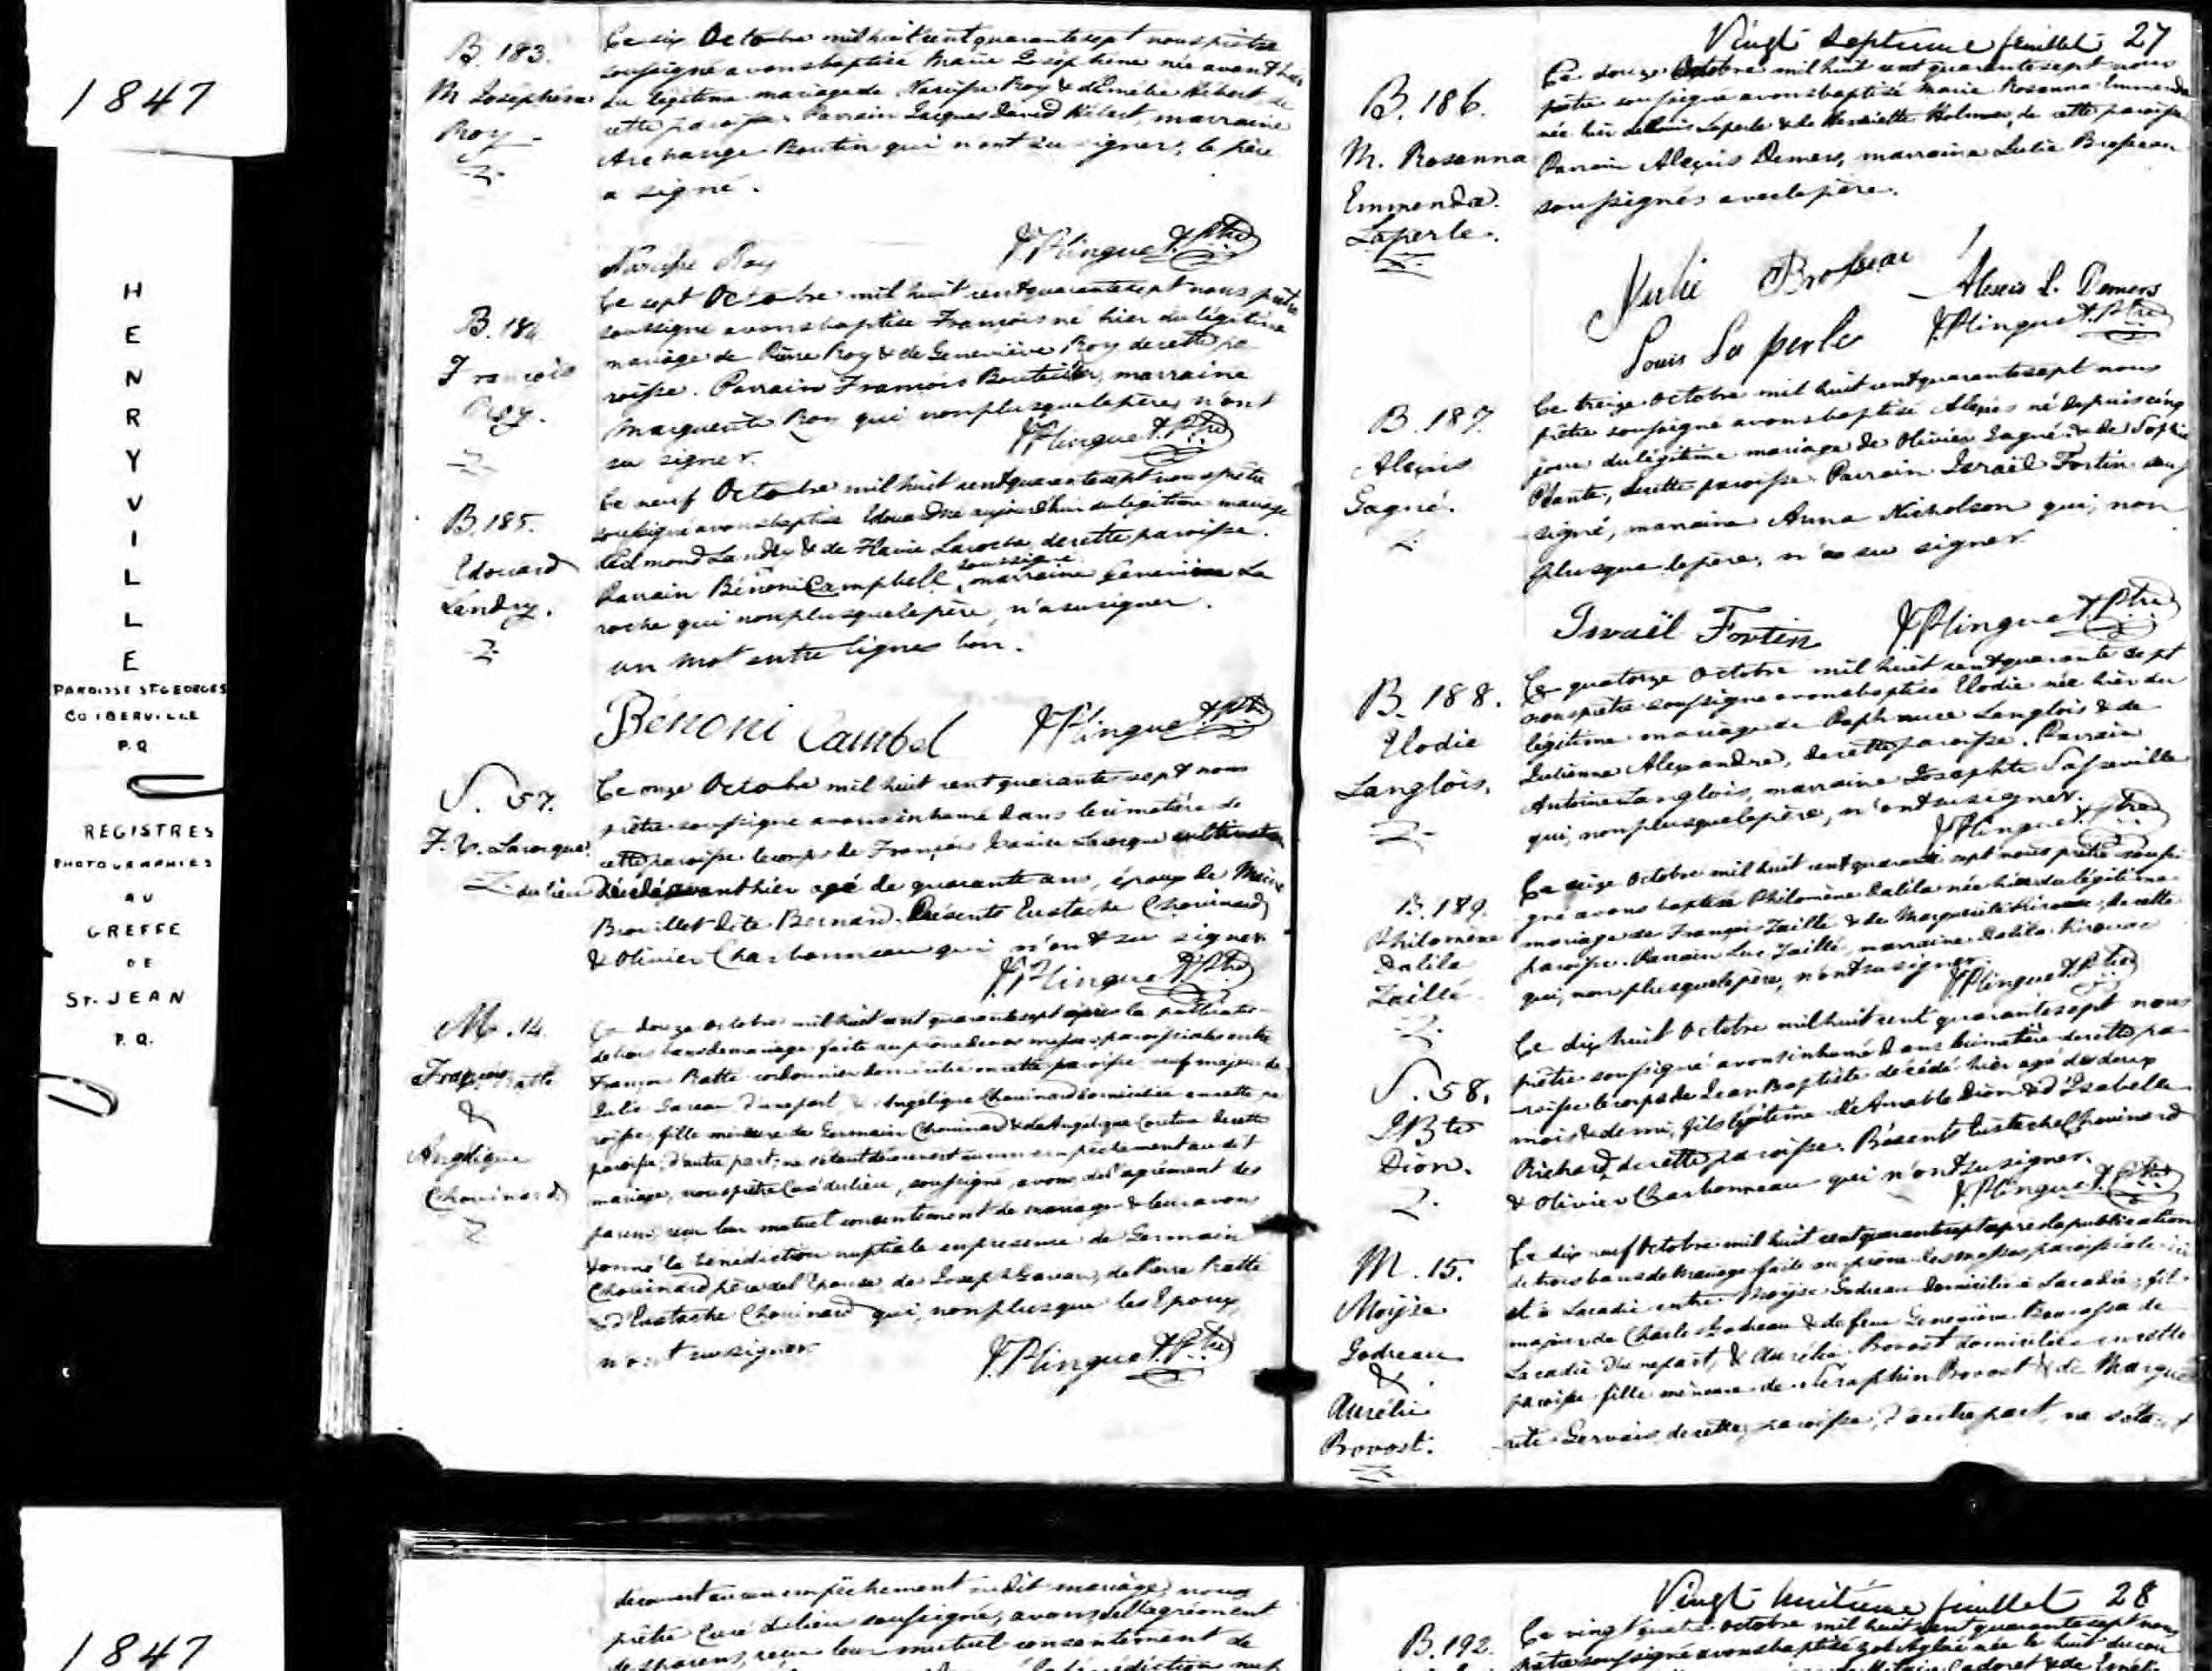 1847
HENRYVILLE
PAROISSE ST GEORGES
CO IBERVILLE
P.Q
REGISTRES
PHOTOGRAPHIES
AU
GREFFE
DE
ST. JEAN
P.Q.
B. 183.
M Joséphine
Roy
Ce six Octobre mil huit cent quarante sept nous prêtre
soussigné avons baptisé Marie Joséphine née avant hier
du légitime mariage de Narcisse Roy & d'Emélie Hébert de
cette paroisse. Parrain Jacques David Hébert, marraine
Archange Boutin qui n'ont su signer, le père
a signé.
Narcisse Roy
B. 184
François
Roy.
Ce sept Octobre mil huit cent quarante sept nous prêtre
soussigné avons baptisé François né hier du légitime
mariage de Pierre Roy & de Geneviève Roy de cette pa
roisse. Parrain François marraine
Marguerite Roy qui non plus que le père, n'ont
su signer.
B. 185.
Edouard
Landry.
Ce neuf Octobre mil huit cent quarante sept nous prêtre
soussigné avons baptisé Edouard né aujourd'hui du légitime mariage
d'Edmond Landry & de Flavie Laroche de cette paroisse.
soussigné
Parrain Bénoni Campbell, marraine Geneviève La
roche qui non plus que le père, n'a su signer.
un mot entre lignes bon.
Bénoni Cambel
S. 57.
F. X. Larocque
Ce onze Octobre mil huit cent quarante sept nous
prêtre soussigné avons inhumé dans le cimetière de
cette paroisse le corps de François Xavier Larocque cultivateur
du lieu décédé avant hier agé de quarante ans, époux de Marie
Brouillet dite Bernard. Présents Eustache Chouinard
& Olivier Charbonneau qui n'ont su signer
M. 14.
François Ratté
&
Angélique
Chouinard
Ce douze Octobre mil huit cent quarante sept après la publication
de trois bans de mariage faite au prône de nos messes paroissiales entre
François Ratté cordonnier domicilié en cette paroisse
Julie d'une part, & Angélique Chouinard domiciliée en cette pa
roisse, fille mineure de Germain Chouinard & de Angélique de cette
paroisse, d'autre part; ne s'étant découvert aucun empêchement au dit
mariage, nous prêtre Curé du lieu, soussigné, avons de l'agrément des
parens reçu leur mutuel consentement de mariage & leur avons
donné la bénédiction nuptiale en présence de Germain
Chouinard père de l'Epouse, de Joseph de Pierre Ratté
d'Eustache Chouinard qui, non plus que les Epoux,
n'ont su signer
Vingt septième feuillet 27
B. 186.
M. Rosanna
Emmenda.
Laperle.
Ce douze Octobre mil huit cent quarante sept nous
prêtre soussigné avons baptisé Marie Rosanna Emmenda
née hier de Louis Laperle & de Henriette Holmes, de cette paroisse
Parrain Alexis Demers, marraine Julie Brosseau
soussignés avec le père.
Julie Brosseau
Alexis L. Demers
Louis Laperle
B. 187.
Alexis
Gagné.
Ce treize Octobre mil huit cent quarante sept nous
prêtre soussigné avons baptisé Alexis né depuis cinq
jours du légitime mariage de Olivier Gagné & de Sophie
Plante, de cette paroisse. Parrain Israël Fortin sous
signé, marraine Anna Nicholson qui, non
plus que le père, n'a su signer
Israël Fortin
B. 188.
Elodie
Langlois.
Ce quatorze Octobre mil huit cent quarante sept
nous prêtre soussigné avons baptisé Elodie née hier du
légitime mariage de Langlois & de
Julienne Alexandre, de cette paroisse. Parrain
Antoine Langlois, marraine Josephte
qui, non plus que le père, n'ont su signer.
B. 189.
Philomène
Dalila
Zaillé
Ce seize Octobre mil huit cent quarante sept nous prêtre soussi
gné avons baptisé Philomène Dalila née hier du légitime
mariage de François Zaillé & de Marguerite de cette
paroisse. Parrain Luc Zaillé, marraine Dalila
qui, non plus que le père, n'ont su signer.
S. 58.
J Bte
Dion.
Ce dix huit Octobre mil huit cent quarante sept nous
prêtre soussigné avons inhumé dans le cimetière de cette pa
roisse le corps de Jean Baptiste décédé hier agé de deux
mois & demi, fils légitime d'Amable Dion & d'Isabelle
Richard de cette paroisse. Présents Eustache Chouinard
& Olivier Charbonneau qui n'ont su signer.
M. 15.
Moÿse
Godreau
&
Aurélie
Provost.
Ce dix neuf Octobre mil huit cent quarante sept après la publication
de trois bans de mariage faite au prône des messes paroissiales ici
et à Lacadie entre Moÿse Godreau domicilié à Lacadie, fils
majeur de Charles Godreau & de feue Geneviève de
Lacadie d'une part, & Aurélie Provost domiciliée en cette
paroisse fille mineure de Séraphin Provost & de Margue
rite Gervais de cette paroisse, d'autre part, ne s'étant
1847
découvert aucun empêchement au dit mariage, nous
prêtre Curé du lieu soussigné, avons de l'agrément
des parens, reçu leur mutuel consentement de
Vingt huitième feuillet 28
B. 192.
Ce vingt quatre Octobre mil huit cent quarante sept nous